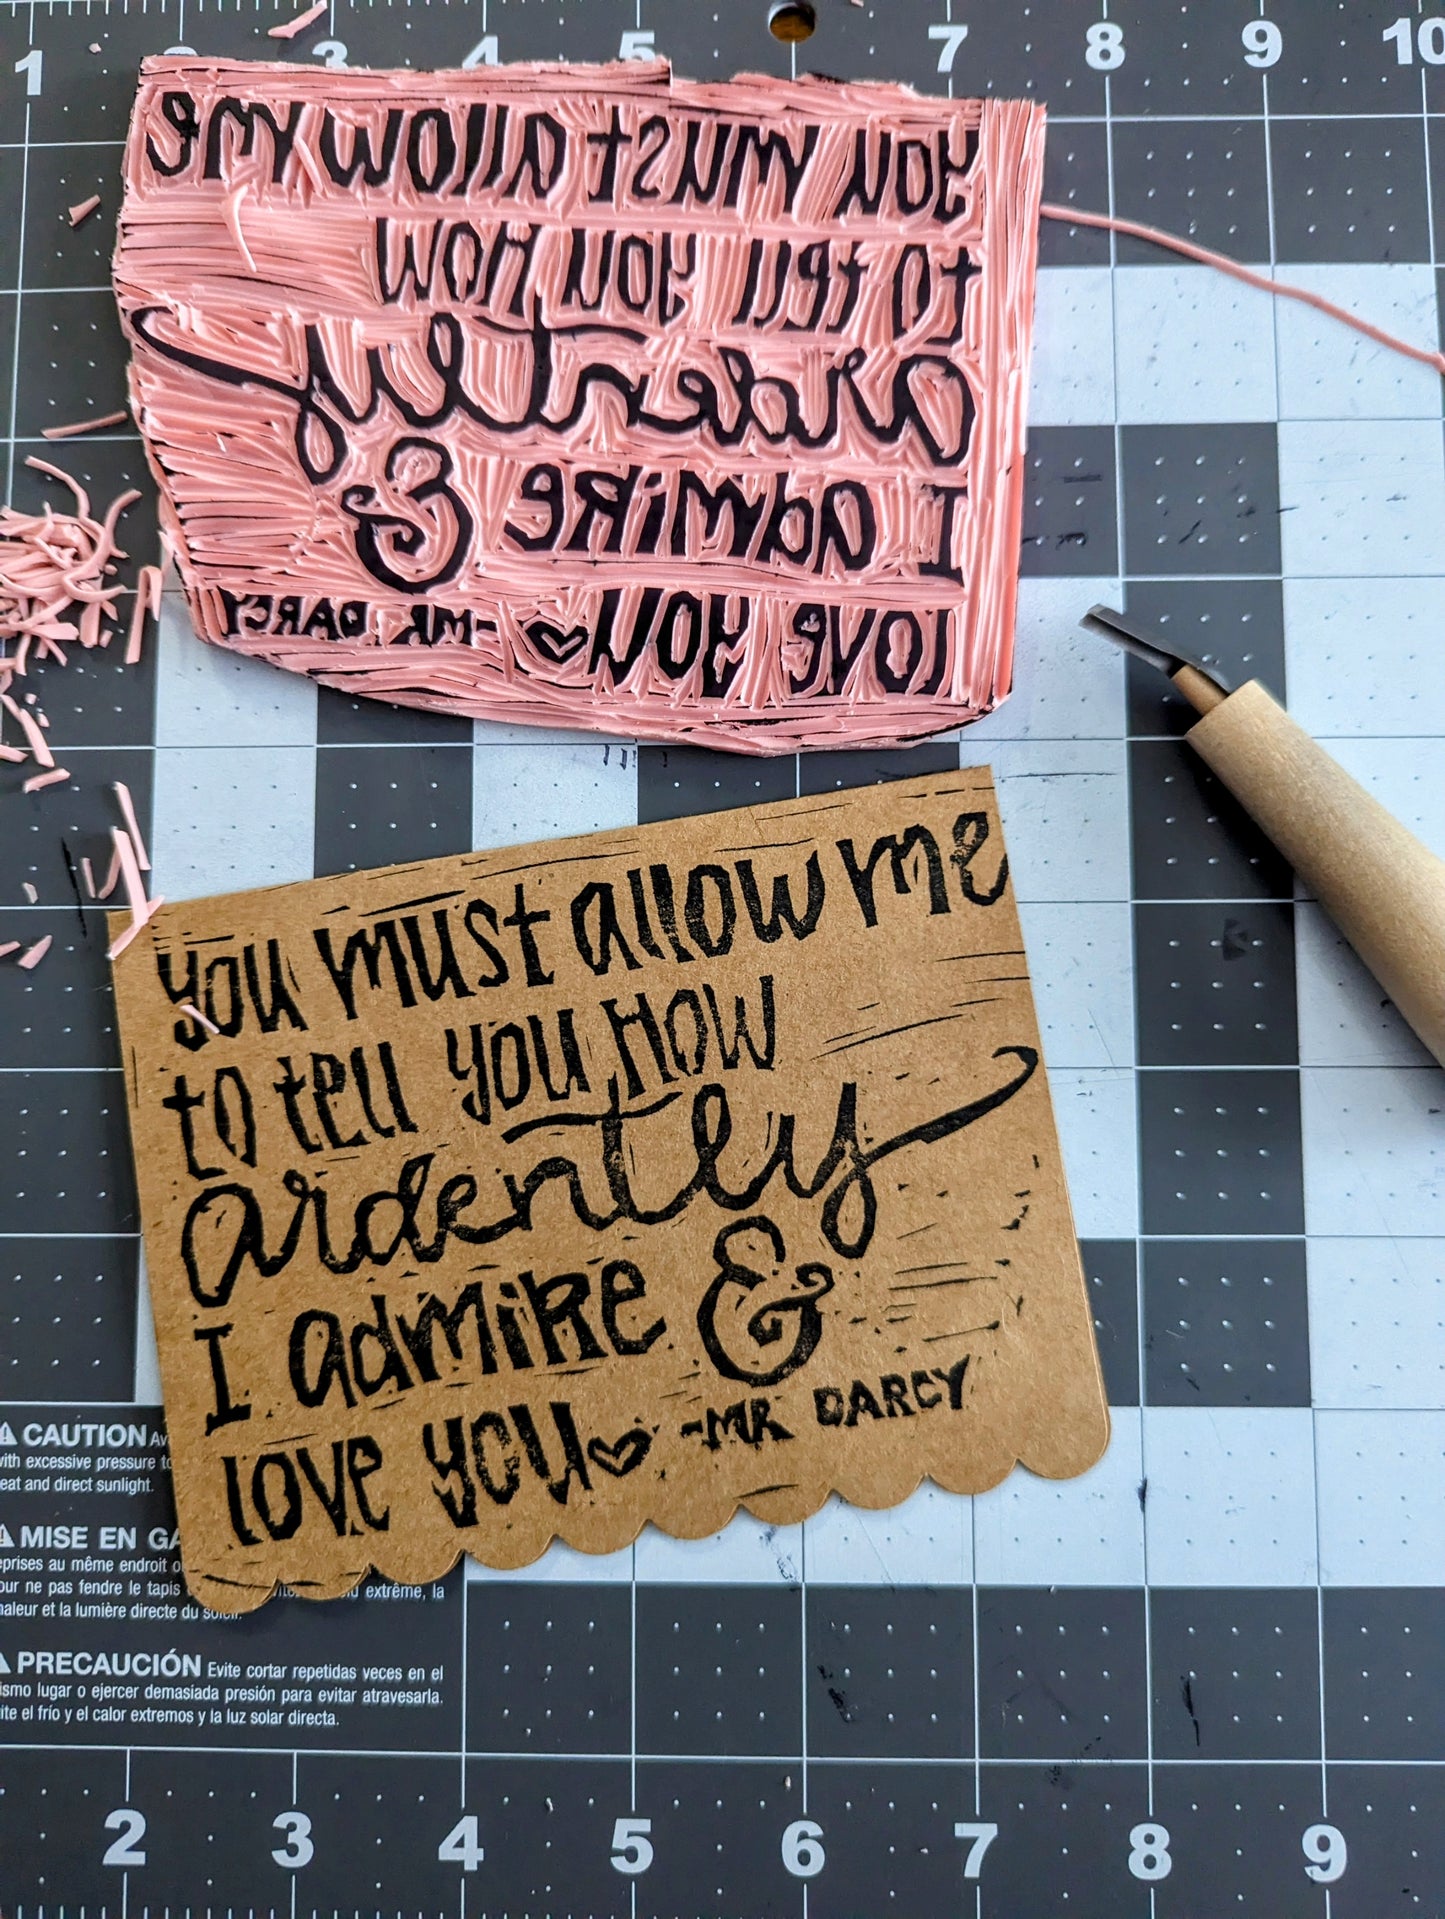 1 2 3 4 5 7 8 9 10
you must allow me
to tell you How
ardently
I admiRe &
love you
-MR DARCY
you must allow me
to tell you How
ardently
I admiRe &
love you -MR DARCY
CAUTION Av
with excessive pressure to
eat and direct sunlight.
MISE EN GA
eprises au même endroit o
our ne pas fendre le tapis
extrême, la
haleur et la lumière directe du soleil.
PRECAUCIÓN Evite cortar repetidas veces en el
ismo lugar o ejercer demasiada presión para evitar atravesarla.
ite el frío y el calor extremos y la luz solar directa.
2 3 4 5 6 7 8 9